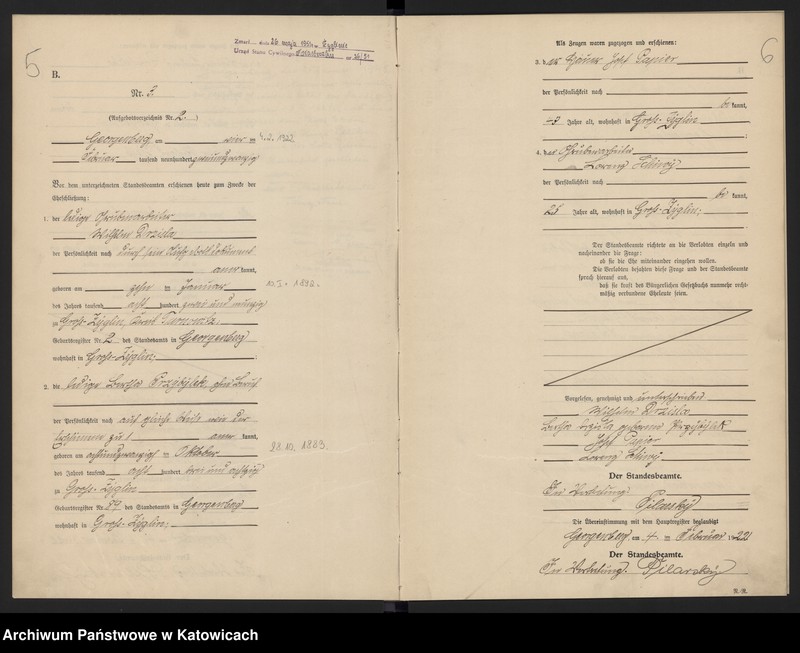 5
Zmarł dnia 26 maja 1951
Urząd Stanu Cywilnego
B.
Nr. 3.
(Aufgebotsverzeichnis Nr. 2.)
Georgenberg am vier ten 4.2.1922
Februar tausend neunhundert zweiundzwanzig
Vor dem unterzeichneten Standesbeamten erschienen heute zum Zwecke der
Eheschließung:
1. der ledige Grubenarbeiter
Wilhelm Drzisla
der Persönlichkeit nach durch sein
aner kannt,
geboren am zehn ten Januar 10.I.1892.
des Jahres tausend acht hundert zwei und neunzig
zu Groß-Zyglin, Kreis Tarnowitz,
Geburtsregister Nr. 2 des Standesamts in Georgenberg
wohnhaft in Groß-Zyglin;
2. die ledige Bertha Przibylek, ohne Beruf
der Persönlichkeit nach auf gleiche Weise wie der
zu 1 aner kannt,
geboren am achtundzwanzigsten Oktober 28.10.1883.
des Jahres tausend acht hundert drei und achtzig
zu Groß-Zyglin
Geburtsregister Nr. 89 des Standesamts in Georgenberg
wohnhaft in Groß-Zyglin;
6
Als Zeugen waren zugezogen und erschienen:
3. der Häuer Josef Papier
der Persönlichkeit nach
be kannt,
43 Jahre alt, wohnhaft in Groß-Zyglin
4. der Grubenarbeiter
Lorenz
der Persönlichkeit nach
be kannt,
25 Jahre alt, wohnhaft in Groß-Zyglin;
Der Standesbeamte richtete an die Verlobten einzeln und
nacheinander die Frage:
ob sie die Ehe miteinander eingehen wollen.
Die Verlobten bejahten diese Frage und der Standesbeamte
sprach hierauf aus,
daß sie kraft des Bürgerlichen Gesetzbuchs nunmehr recht-
mäßig verbundene Eheleute seien.
Vorgelesen, genehmigt und unterschrieben
Wilhelm Drzisla
Bertha Drzisla geborene Przibylek
Josef Papier
Lorenz
Der Standesbeamte.
In Vertretung
Pilarsky
Die Übereinstimmung mit dem Hauptregister beglaubigt
Georgenberg am 4 ten Februar 1922
Der Standesbeamte.
In Vertretung. Pilarsky
R.-R.
Archiwum Państwowe w Katowicach